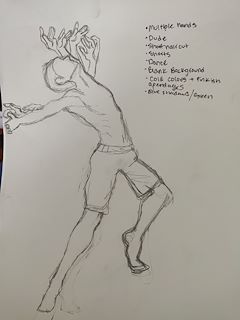 • Multiple hands
• Dude
• Short haircut
• Shorts
• Dance
• Blank Background
• Cold colors + Pinkish
apendages
• Blue shadows/Green